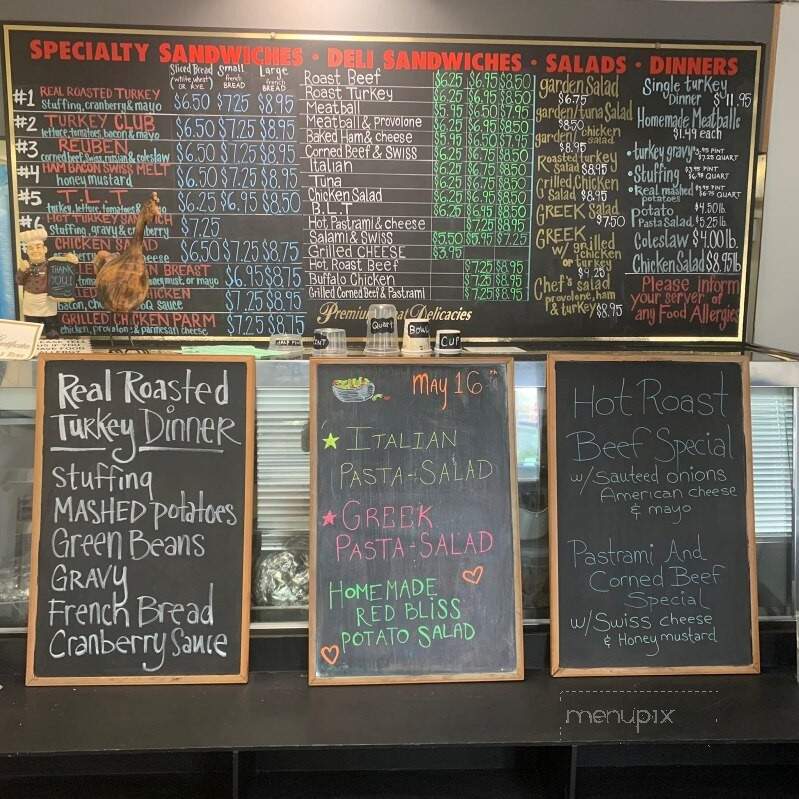 SPECIALTY SANDWICHES · DELI SANDWICHES · SALADS · DINNERS
Sliced Bread Small Large
(white, wheat OR RYE) french BREAD french BREAD
#1 REAL ROASTED TURKEY
stuffing, cranberry & mayo $6.50 $7.25 $8.95
#2 TURKEY CLUB
lettuce, tomatoes, bacon & mayo $6.50 $7.25 $8.95
#3 REUBEN
corned beef, Swiss, russian & coleslaw $6.50 $7.25 $8.95
#4 HAM BACON SWISS MELT
honey mustard $6.50 $7.25 $8.95
#5 T.L.T.
turkey, lettuce, tomatoes & $6.25 $6.95 $8.50
#6 HOT TURKEY SANDWICH
stuffing, gravy & cranberry $7.25
CHICKEN SALAD
$6.50 $7.25 $8.75
BREAST
mayo $6.95 $8.75
bacon, BBQ Sauce $7.25 $8.95
GRILLED CHICKEN PARM
chicken, provolone & parmesan cheese $7.25 $8.75
Roast Beef $6.25 $6.95 $8.50
Roast Turkey $6.25 $6.95 $8.50
Meatball
Meatball & provolone
Baked Ham & cheese
Corned Beef & Swiss
Italian
Tuna
Chicken Salad
B.L.T.
Hot Pastrami & cheese
Salami & Swiss $5.50 $5.95 $7.25
Grilled CHEESE $3.95
Hot Roast Beef $7.25 $8.95
Buffalo Chicken $7.25 $8.95
Grilled Corned Beef & Pastrami $7.25 $8.95
Delicacies
garden Salad
$6.75
garden/tuna Salad
$8.50
garden/chicken salad
$8.95
Roasted turkey
Salad $8.95
Grilled Chicken
Salad $8.95
GREEK Salad
$7.50
GREEK
w/ grilled
chicken
or turkey
$9.25
Chef's salad
provolone, ham
& turkey $8.95
Single turkey
Dinner $11.95
Homemade Meatballs
$1.49 each
• turkey gravy PINT
$7.25 QUART
• Stuffing PINT
QUART
• Real mashed PINT
potatoes QUART
Potato $4.50lb.
Pasta Salad $5.25 lb
Coleslaw $4.00lb.
Chicken Salad $8.95lb
Please inform
your server of
any Food Allergies
THANK
YOU!
Quart
Bowl
Cup
Real Roasted
Turkey Dinner
stuffing
MASHED potatoes
Green Beans
GRAVY
French Bread
Cranberry Sauce
May 16th
ITALIAN
PASTA-SALAD
GREEK
PASTA-SALAD
HOMEMADE
RED BLISS
POTATO SALAD
Hot Roast
Beef Special
w/Sauteed onions
American cheese
& mayo
Pastrami And
Corned Beef
Special
w/Swiss cheese
& Honey mustard
menupix